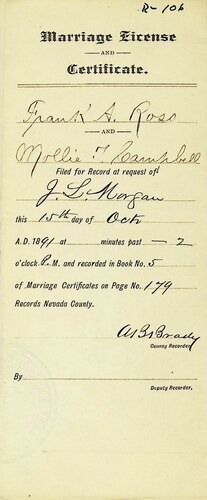 R-106
Marriage License
AND
Certificate.
Frank A. Ross
AND
Mollie F. Campbell
Filed for Record at request of
J. L. Morgan
this 15th day of Octr
A.D. 1891 at minutes past — 2
o'clock P. M. and recorded in Book No. 5
of Marriage Certificates on Page No. 179
Records Nevada County.
Brady
County Recorder
By
Deputy Recorder,